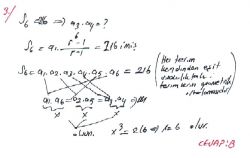 3/
S₆ = 216 ⇒ a₃·a₄ = ?
S₆ = a₁ · r⁶-1 / r-1 = 216 imiş
S₆ = a₁·a₂·a₃·a₄·a₅·a₆ = 216
(Her terim
kendinden eşit
uzaklıktaki
terimlerin geometrik
ortalamasıdır)
a₁·a₆ = a₂·a₅ = a₃·a₄
x x x
olsun. x³ = 216 ⇒ x = 6 olur.
CEVAP: B